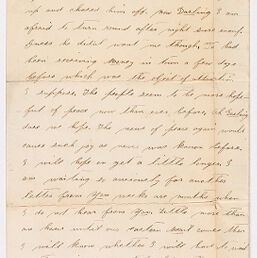 up and chased him off. Now Darling I am
afraid to turn round after night ever
he didnt want me though, I had
been receiving money in town a few days
before which was the object of attraction
I suppose. The people seem to be more hope-
ful of peace now than ever before, Oh Darling
does we hope. The news of peace again would
cause such joy as never was known before.
I will hope on yet a little longer. I
am waiting so anxiously for another
letter from you weeks are months when
I do not hear from you. Little more than
an hour until our eastern mail comes then
I will know whether I will have to wait